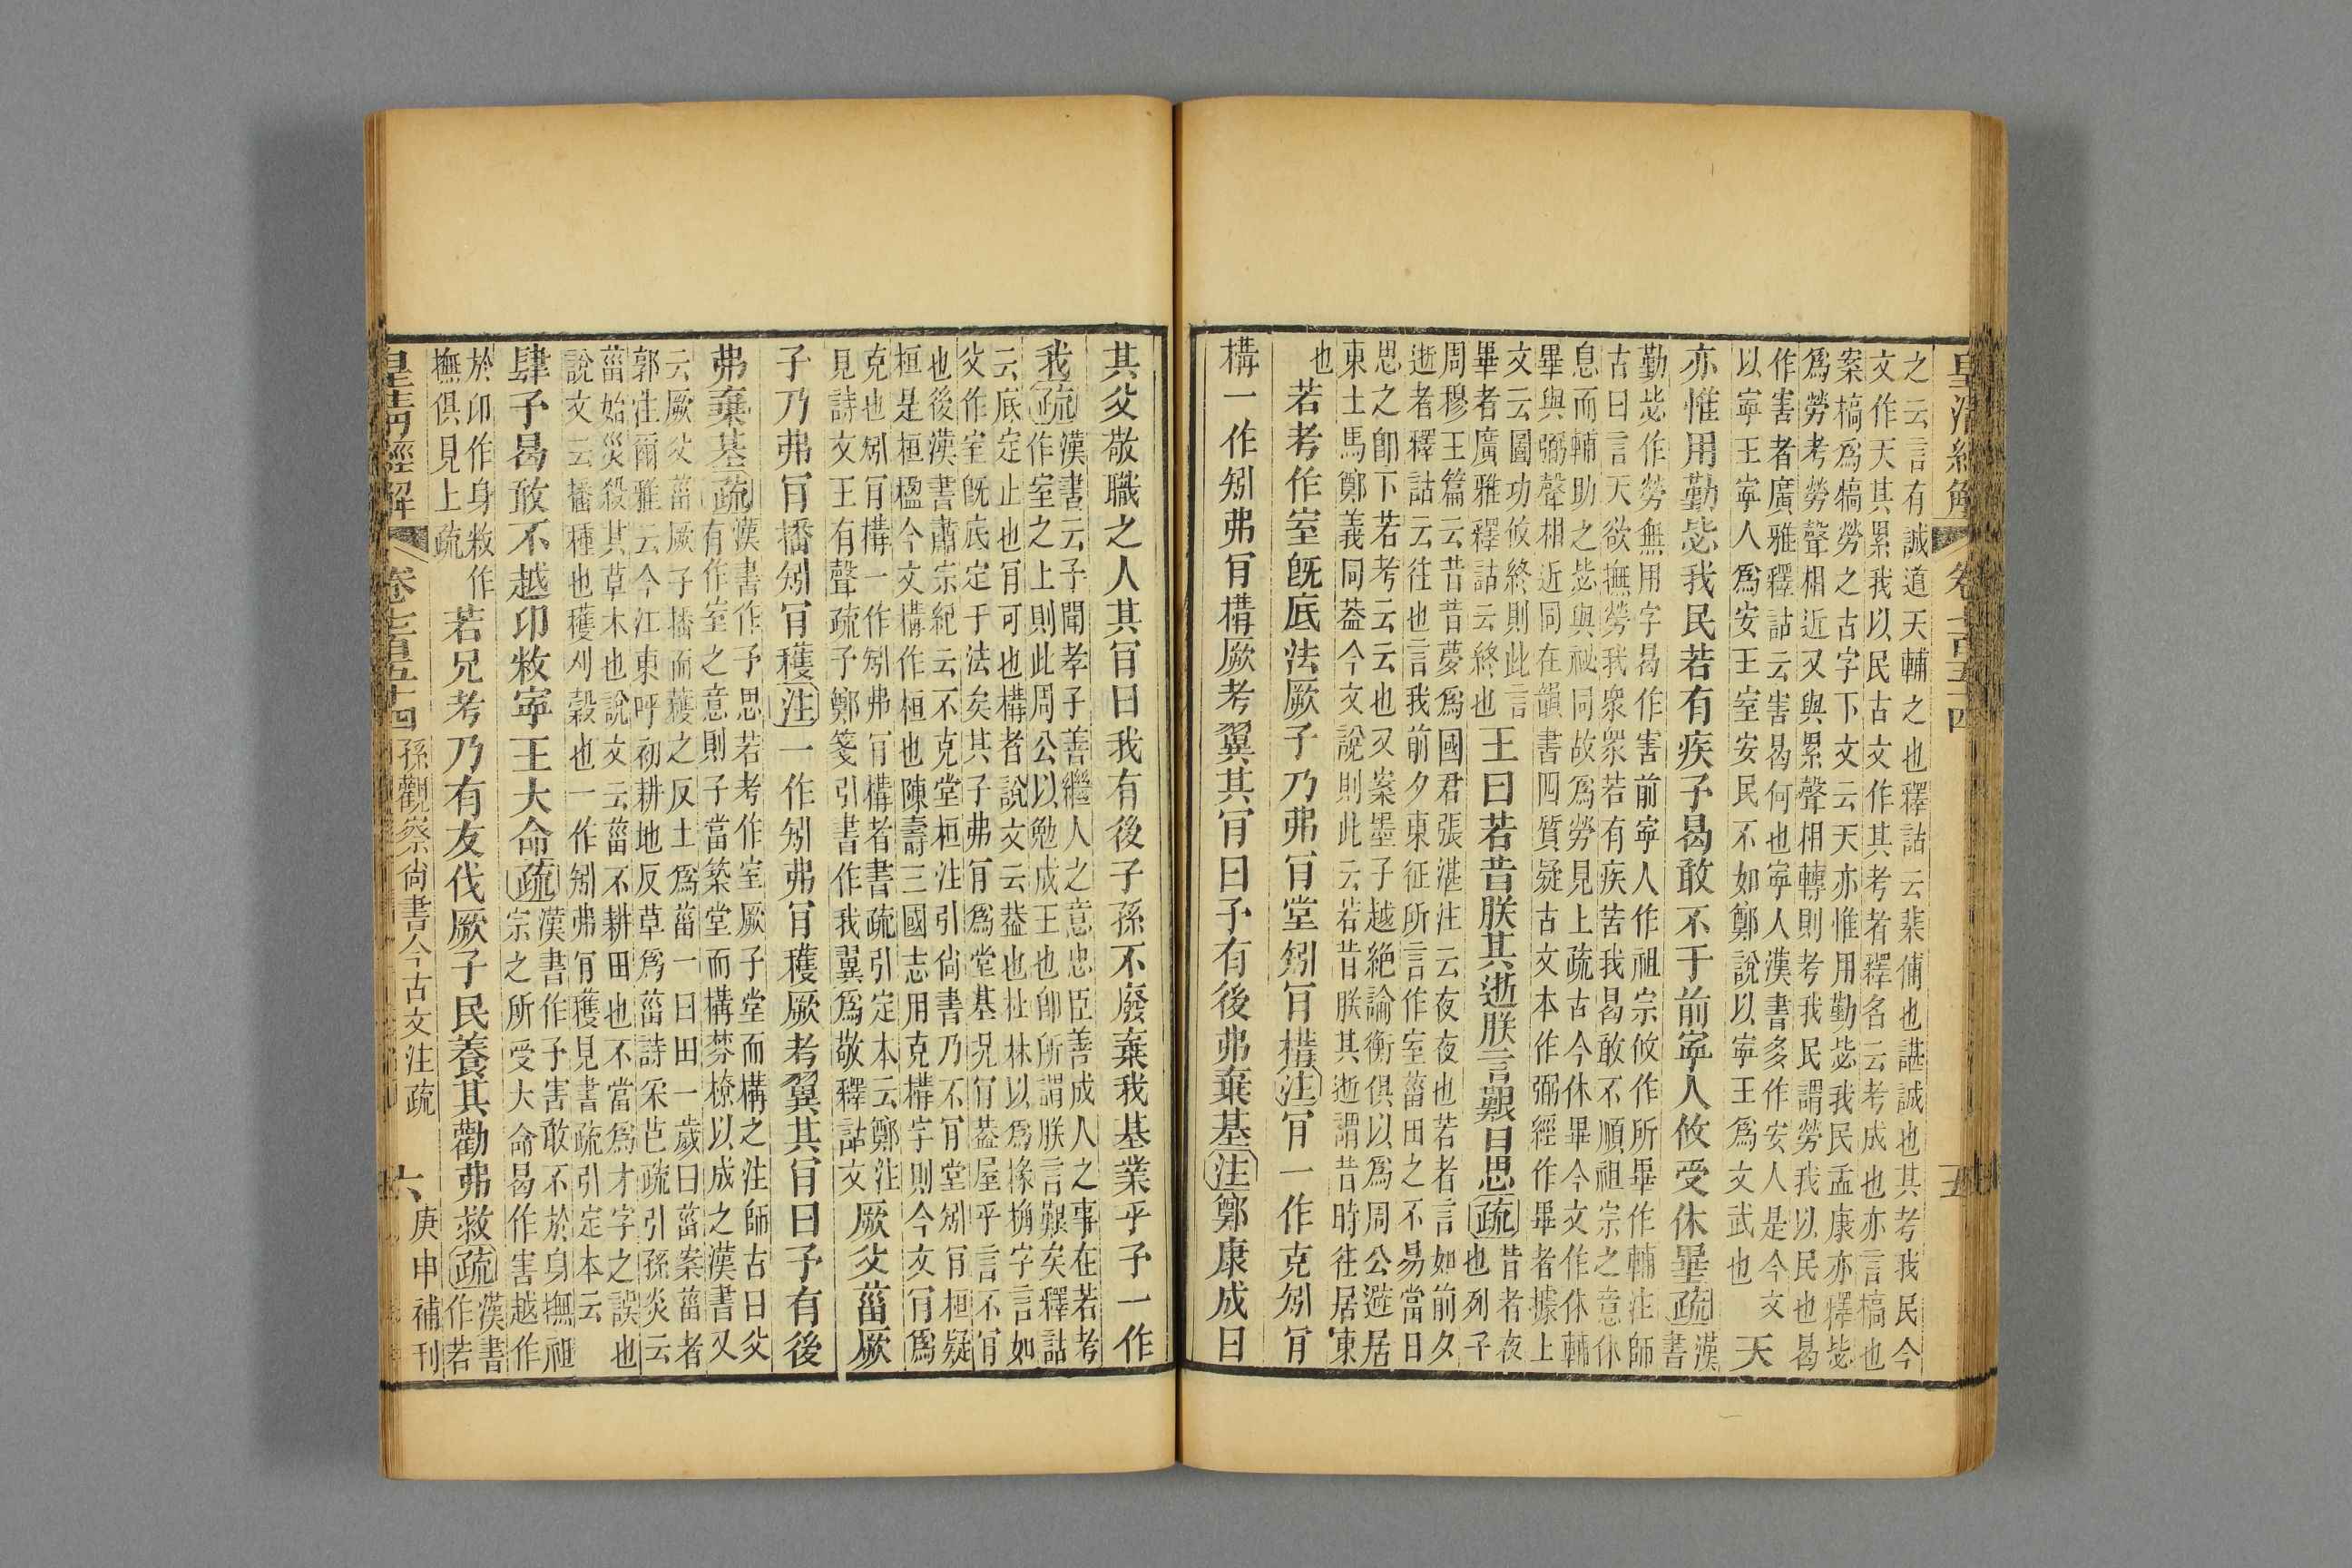 皇清經解 卷七百五十四 五
之云言有誠道天輔之也釋詁云棐俌也諶誠也其考我民今
文作天其累我以民古文作其考者釋名云考成也亦言槁也
案槁爲犒勞之古字下文云天亦惟用勤毖我民孟康亦釋毖
爲勞考勞聲相近又與累聲相轉則考我民謂勞我以民也曷
作害者廣雅釋詁云害曷何也寧人漢書多作安人是今文
以寧王寧人爲安王室安民不如鄭說以寧王爲文武也
天
亦惟用勤毖我民若有疾予曷敢不于前寧人攸受休畢疏漢
書
勤毖作勞無用字曷作害前寧人作祖宗攸作所畢作輔注師
古曰言天欲撫勞我衆衆若有疾苦我曷敢不順祖宗之意休
息而輔助之毖與祕同故爲勞見上疏古今休畢今文作休輔
畢與弼聲相近同在韻書四質疑古文本作弼經作畢者據上
文云圖功攸終則此言
畢者廣雅釋詁云終也
王曰若昔朕其逝朕言艱日思疏昔者夜
也列子
周穆王篇云昔昔夢爲國君張湛注云夜夜也若者言如前夕
逝者釋詁云往也言我前夕東征所言作室菑田之不易當日
思之卽下若考云云也又案墨子越絕論衡俱以爲周公遊居
東土馬鄭義同葢今文說則此云若昔朕其逝謂昔時往居東
也
若考作室旣底法厥子乃弗肯堂矧肯構注肯一作克矧肯
構一作矧弗肯構厥考翼其肯曰予有後弗棄基注鄭康成曰
其父敬職之人其肯曰我有後子孫不廢棄我基業乎予一作
我疏漢書云予聞孝子善繼人之意忠臣善成人之事在若考
作室之上則此周公以勉成王也卽所謂朕言艱矣釋詁
云底定止也肯可也構者說文云葢也杜林以爲椽桷字言如
父作室旣底定于法矣其子弗肯爲堂基况肯葢屋乎言不肯
也後漢書肅宗紀云不克堂桓注引尙書乃不肯堂矧肯桓疑
桓是桓楹今文構作桓也陳壽三國志用克構字則今文肯爲
克也矧肯構一作矧弗肯構者書疏引定本云鄭注
見詩文王有聲疏子鄭箋引書作我翼爲敬釋詁文
厥父菑厥
子乃弗肯播矧肯穫注一作矧弗肯穫厥考翼其肯曰予有後
弗棄基疏漢書作予思若考作室厥子堂而構之注師古曰父
有作室之意則子當築堂而構棼橑以成之漢書又
云厥父菑厥子播而穫之反土爲菑一曰田一歲曰菑案菑者
郭注爾雅云今江東呼初耕地反草爲菑詩采芑疏引孫炎云
菑始災殺其草木也說文云菑不耕田也不當爲才字之誤也
說文云播種也穫刈穀也一作矧弗肯穫見書疏引定本云
肆予曷敢不越卬敉寧王大命疏漢書作予害敢不於身撫祖
宗之所受大命曷作害越作
於卬作身敉作
撫俱見上疏
若兄考乃有友伐厥子民養其勸弗救疏漢書
作若
皇清經解 卷七百五十四 孫觀察尙書今古文注疏 六 庚申補刊